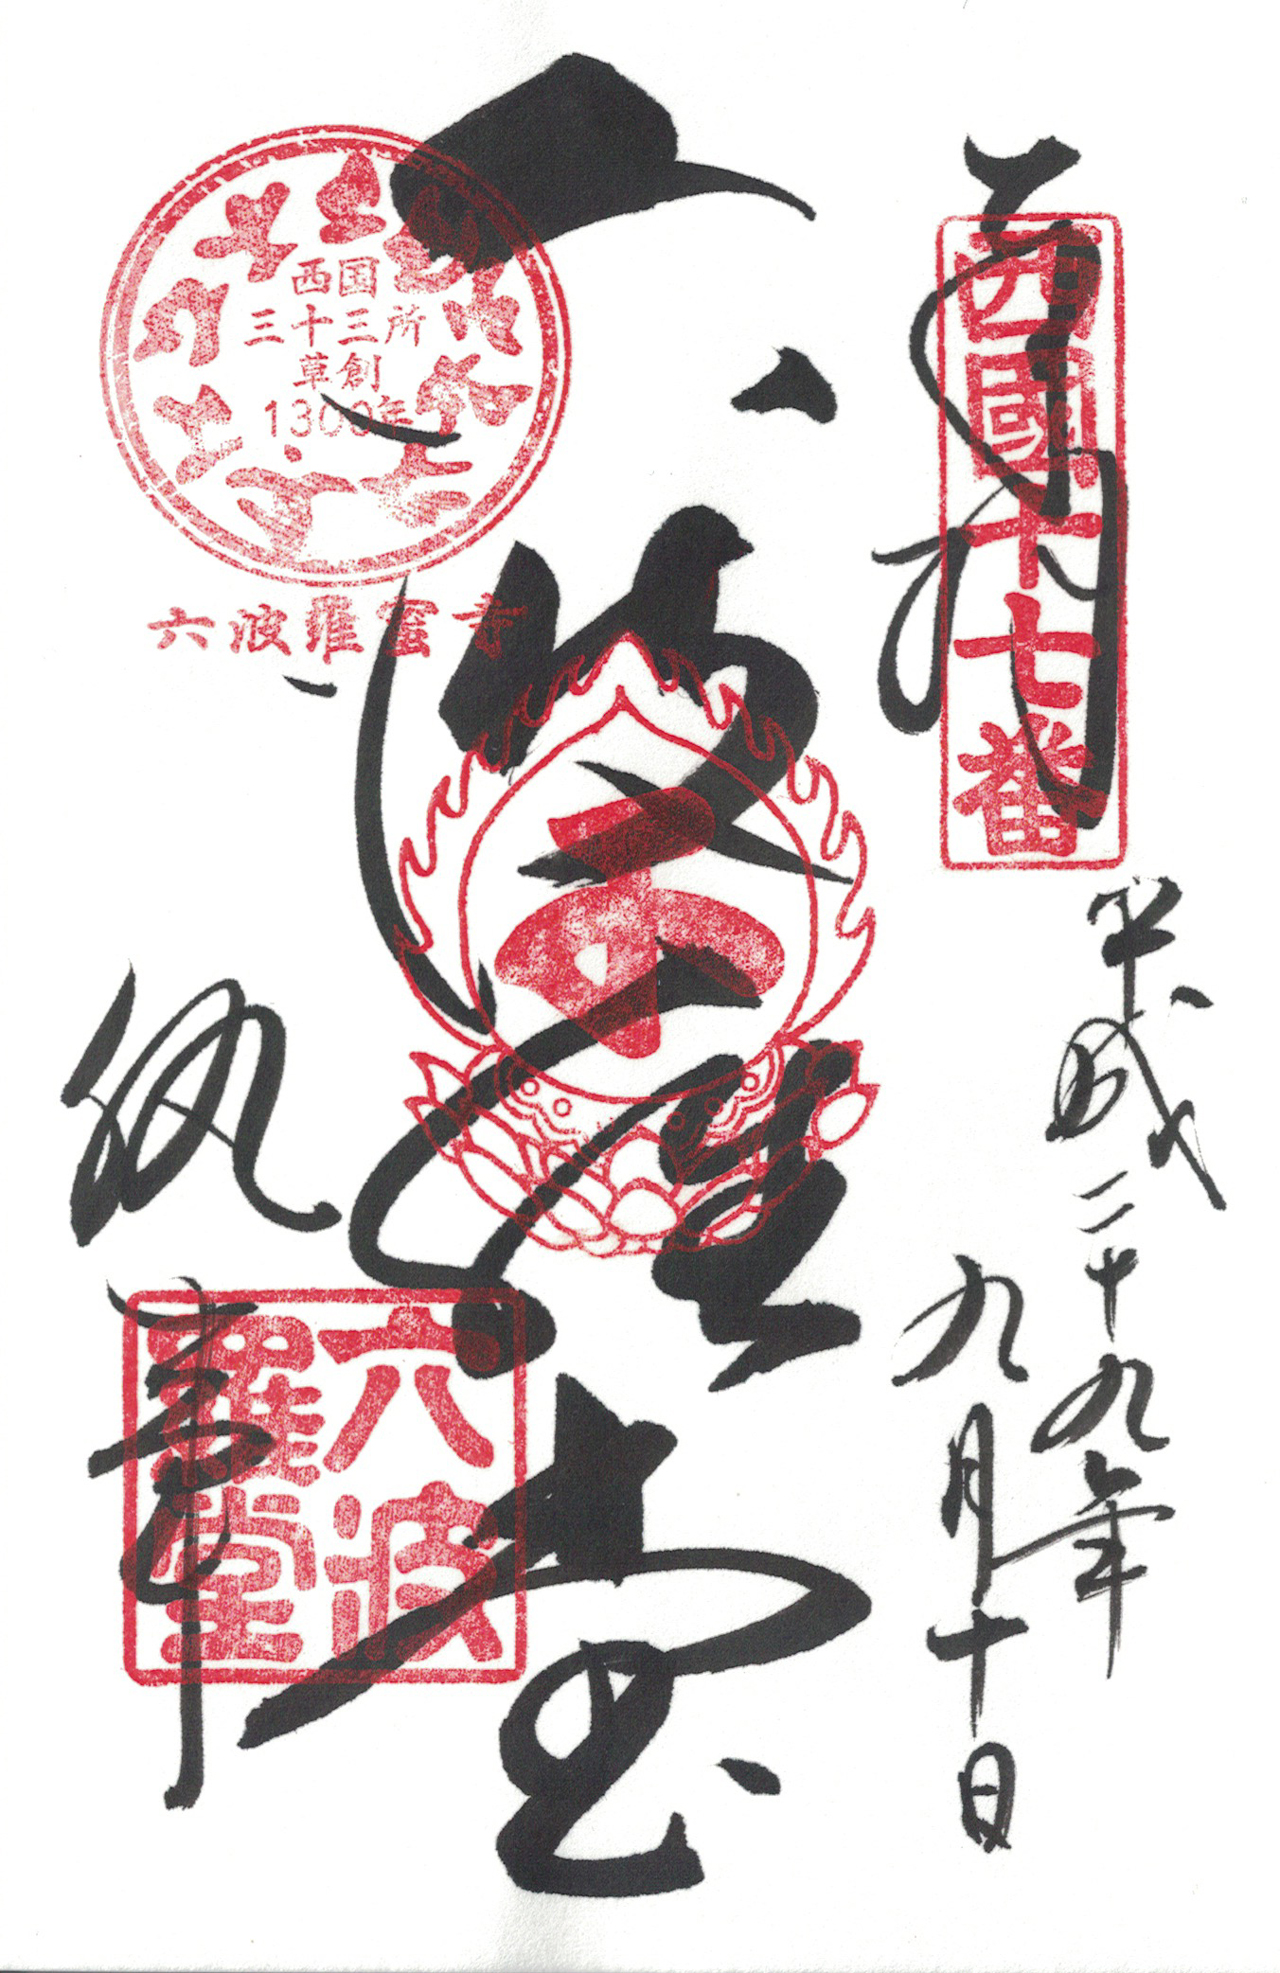 奉拝
西國十七番
平成二十九年
九月十日
六波羅堂
西国
三十三所
草創
1300年
六波羅蜜寺
執事
六波
羅堂